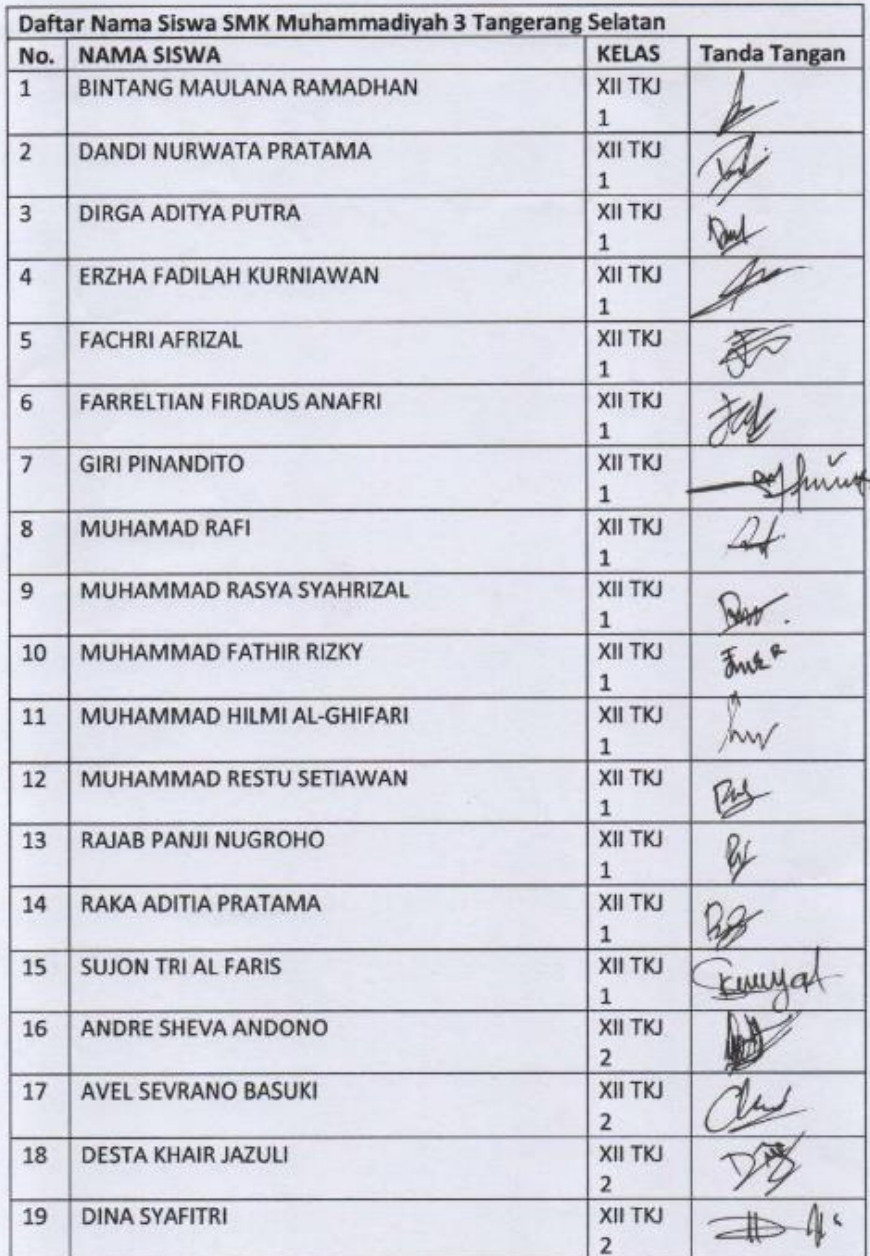 Daftar Nama Siswa SMK Muhammadiyah 3 Tangerang Selatan
No. NAMA SISWA KELAS Tanda Tangan
1 BINTANG MAULANA RAMADHAN XII TKJ
1
2 DANDI NURWATA PRATAMA XII TKJ
1
3 DIRGA ADITYA PUTRA XII TKJ
1
4 ERZHA FADILAH KURNIAWAN XII TKJ
1
5 FACHRI AFRIZAL XII TKJ
1
6 FARRELTIAN FIRDAUS ANAFRI XII TKJ
1
7 GIRI PINANDITO XII TKJ
1
8 MUHAMAD RAFI XII TKJ
1
9 MUHAMMAD RASYA SYAHRIZAL XII TKJ
1
10 MUHAMMAD FATHIR RIZKY XII TKJ
1
11 MUHAMMAD HILMI AL-GHIFARI XII TKJ
1
12 MUHAMMAD RESTU SETIAWAN XII TKJ
1
13 RAJAB PANJI NUGROHO XII TKJ
1
14 RAKA ADITIA PRATAMA XII TKJ
1
15 SUJON TRI AL FARIS XII TKJ
1
16 ANDRE SHEVA ANDONO XII TKJ
2
17 AVEL SEVRANO BASUKI XII TKJ
2
18 DESTA KHAIR JAZULI XII TKJ
2
19 DINA SYAFITRI XII TKJ
2